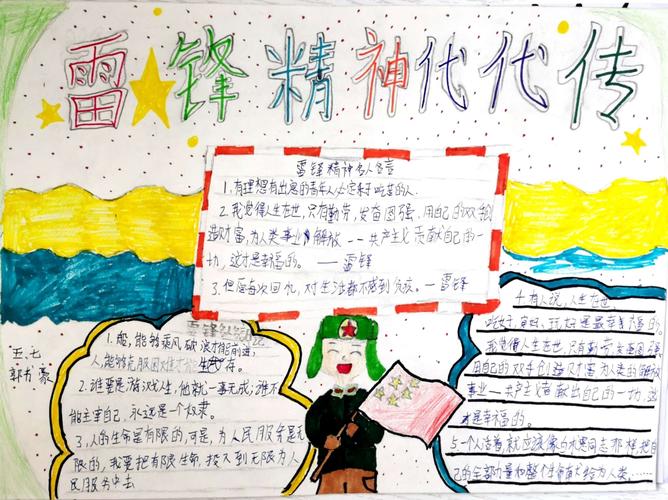 雷锋精神代代传
雷锋精神名人名言
1.有理想有出息的青年人必定是乐于吃苦的人.
2.我觉得人生在世,只有勤劳,发奋图强、用自己的双手创
造财富,为人类事业解放--共产主义贡献自己的一
切,这才是幸福的。——雷锋
3.但愿每次回忆,对生活都不感到负疚。—雷锋
五、七
1.船,能够乘风破浪才能前进;
人,能够克服困难才能生存。
2.谁要是游戏人生,他就一事无成;谁不
能主宰自己,永远是个奴隶。
3,人的生命是有限的,可是,为人民服务是无
限的,我要把有限生命,投入到无限为人
民服务中去
有人说,人生在世
吃好、穿好、玩好是最幸福的。
我觉得人生在世,只有勤劳,发奋图强
用自己的双手创造财富为人类的解放
事业—共产主义贡献出自己的一切,这
才是幸福的。
己的全部力量和整个生命献给为人类……